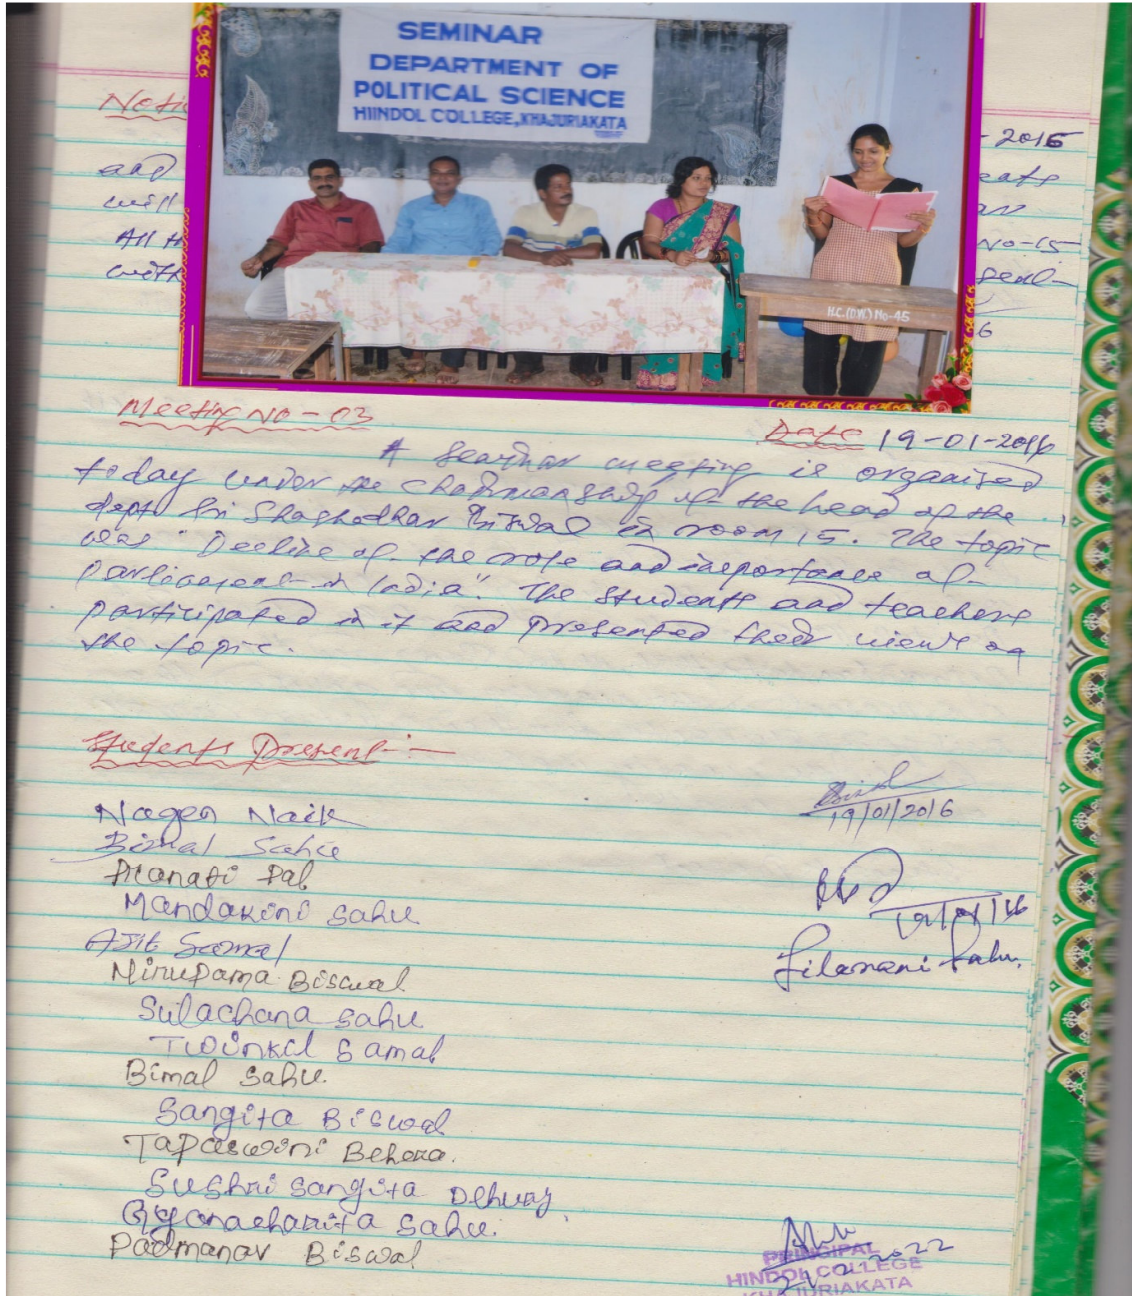 SEMINAR
DEPARTMENT OF
POLITICAL SCIENCE
HIINDOL COLLEGE, KHAJURIAKATA
H.C.(D.W.) No-45
2016
and
will
All
No-15
with
6
Meeting No - 03
Date 19-01-2016
A Seminar meeting is organised
today under the Chairmanship of the head of the
dept Sri Shashadhar Biswal in room 15. The topic
was "Decline of the role and importance of
parliament in India". The students and teachers
participated in it and presented their views on
the topic.
Students Present :-
19/01/2016
Nagen Naik
Bimal Sahu
Pranati Pal
Mandakini Sahu
Ajit Samal
Lilamani Sahu.
Nirupama Biswal
Sulachana Sahu
Twinkil Samal
Bimal Sahu.
Sangita Biswal
Tapaswini Behera.
Sushri Sangita Dehury
Sahu.
Padmanav Biswal
PRINCIPAL
HINDOL COLLEGE
KHAJURIAKATA
2022